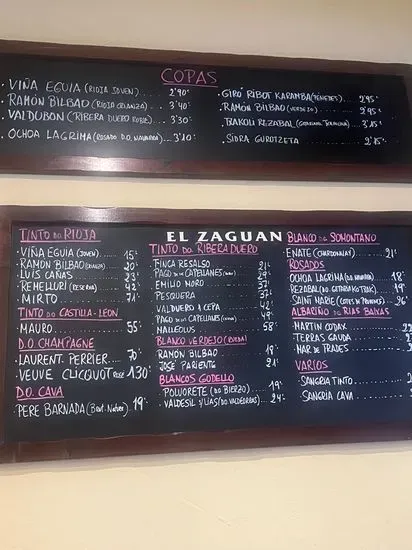 COPAS
· VIÑA EGUIA (RIOJA JOVEN) ..... 2'90·
· RAMÓN BILBAO (RIOJA CRIANZA) ... 3'40·
· VALDUBON (RIBERA DUERO ROBLE) .. 3'30·
· OCHOA LAGRIMA (ROSADO D.O. NAVARRA) 3'10
· GIRÓ RIBOT KARAMBA (PENEDES) ... 2'95·
· RAMÓN BILBAO (VERDEJO) ... 2'95·
· TXAKOLI REZABAL ... 3'15·
· SIDRA GUROTZETA ... 2'15·
EL ZAGUAN
TINTO D.O RIOJA
VIÑA EGUIA (JOVEN) ... 15·
RAMÓN BILBAO (CRIANZA) .. 20·
LUIS CAÑAS ... 23·
REMELLURI (RESERVA) ... 42·
MIRTO ... 71·
TINTO D.O CASTILLA-LEON
MAURO ... 55·
D.O. CHAMPAGNE
LAURENT-PERRIER ... 70·
VEUVE CLICQUOT ROSE 130·
D.O. CAVA
PERE BARNADA (Brut-Nature) 19·
TINTO D.O RIBERA DUERO
FINCA RESALSO ... 21·
PAGO DE LOS CAPELLANES ... 29·
EMILIO MORO ... 37·
PESQUERA ... 37·
VALDUERO 1 CEPA ... 42·
PAGO DE LOS CAPELLANES
MALLEOLUS ... 58·
BLANCO VERDEJO (RUEDA)
RAMÓN BILBAO ... 19·
JOSÉ PARIENTE ... 21·
BLANCOS GODELLO
· POLVORETE (DO BIERZO) ... 19·
· VALDESIL (DO VALDEORRAS) .. 24·
BLANCO D.O SOMONTANO
ENATE (CHARDONNAY) ... 21·
ROSADOS
OCHOA LAGRIMA (DO NAVARRA) . 18·
REZABAL (DO GETARIAKO TXAK.)
SAINT MARIE (COTES DE PROVENCE)
ALBARIÑO D.O RIAS BAIXAS
MARTIN CODAX
TERRAS GAUDA
MAR DE FRADES
VARIOS
SANGRIA TINTO
SANGRIA CAVA